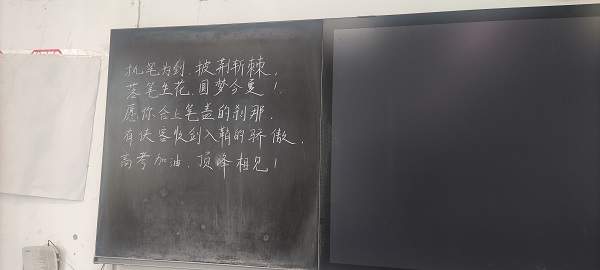 执笔为剑，披荆斩棘，
落笔生花，圆梦今夏！
愿你合上笔盖的刹那，
有侠客收剑入鞘的骄傲，
高考加油，顶峰相见！